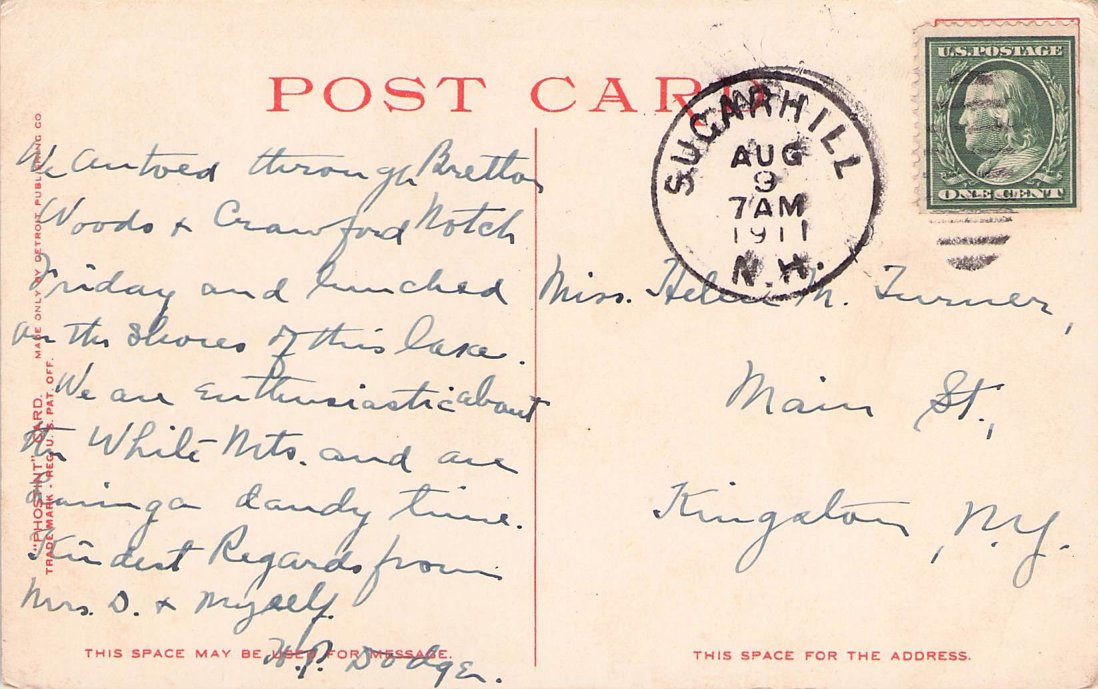 POST CARD
U.S. POSTAGE
ONE CENT
SUGAR HILL
AUG
9
7 AM
1911
N.H.
We autoed through Bretton
Woods & Crawford Notch
Friday and lunched
on the shores of this lake.
We are enthusiastic about
the White Mts. and are
having a dandy time.
Kindest Regards from
Mrs. D. & Myself.
H.P. Dodge.
Miss. Helen M. Turner,
Main St.,
Kingston, N.Y.
"PHOSTINT" CARD. MADE ONLY BY DETROIT PUBLISHING CO
TRADE MARK - REG. U. S. PAT. OFF.
THIS SPACE MAY BE USED FOR MESSAGE.
THIS SPACE FOR THE ADDRESS.